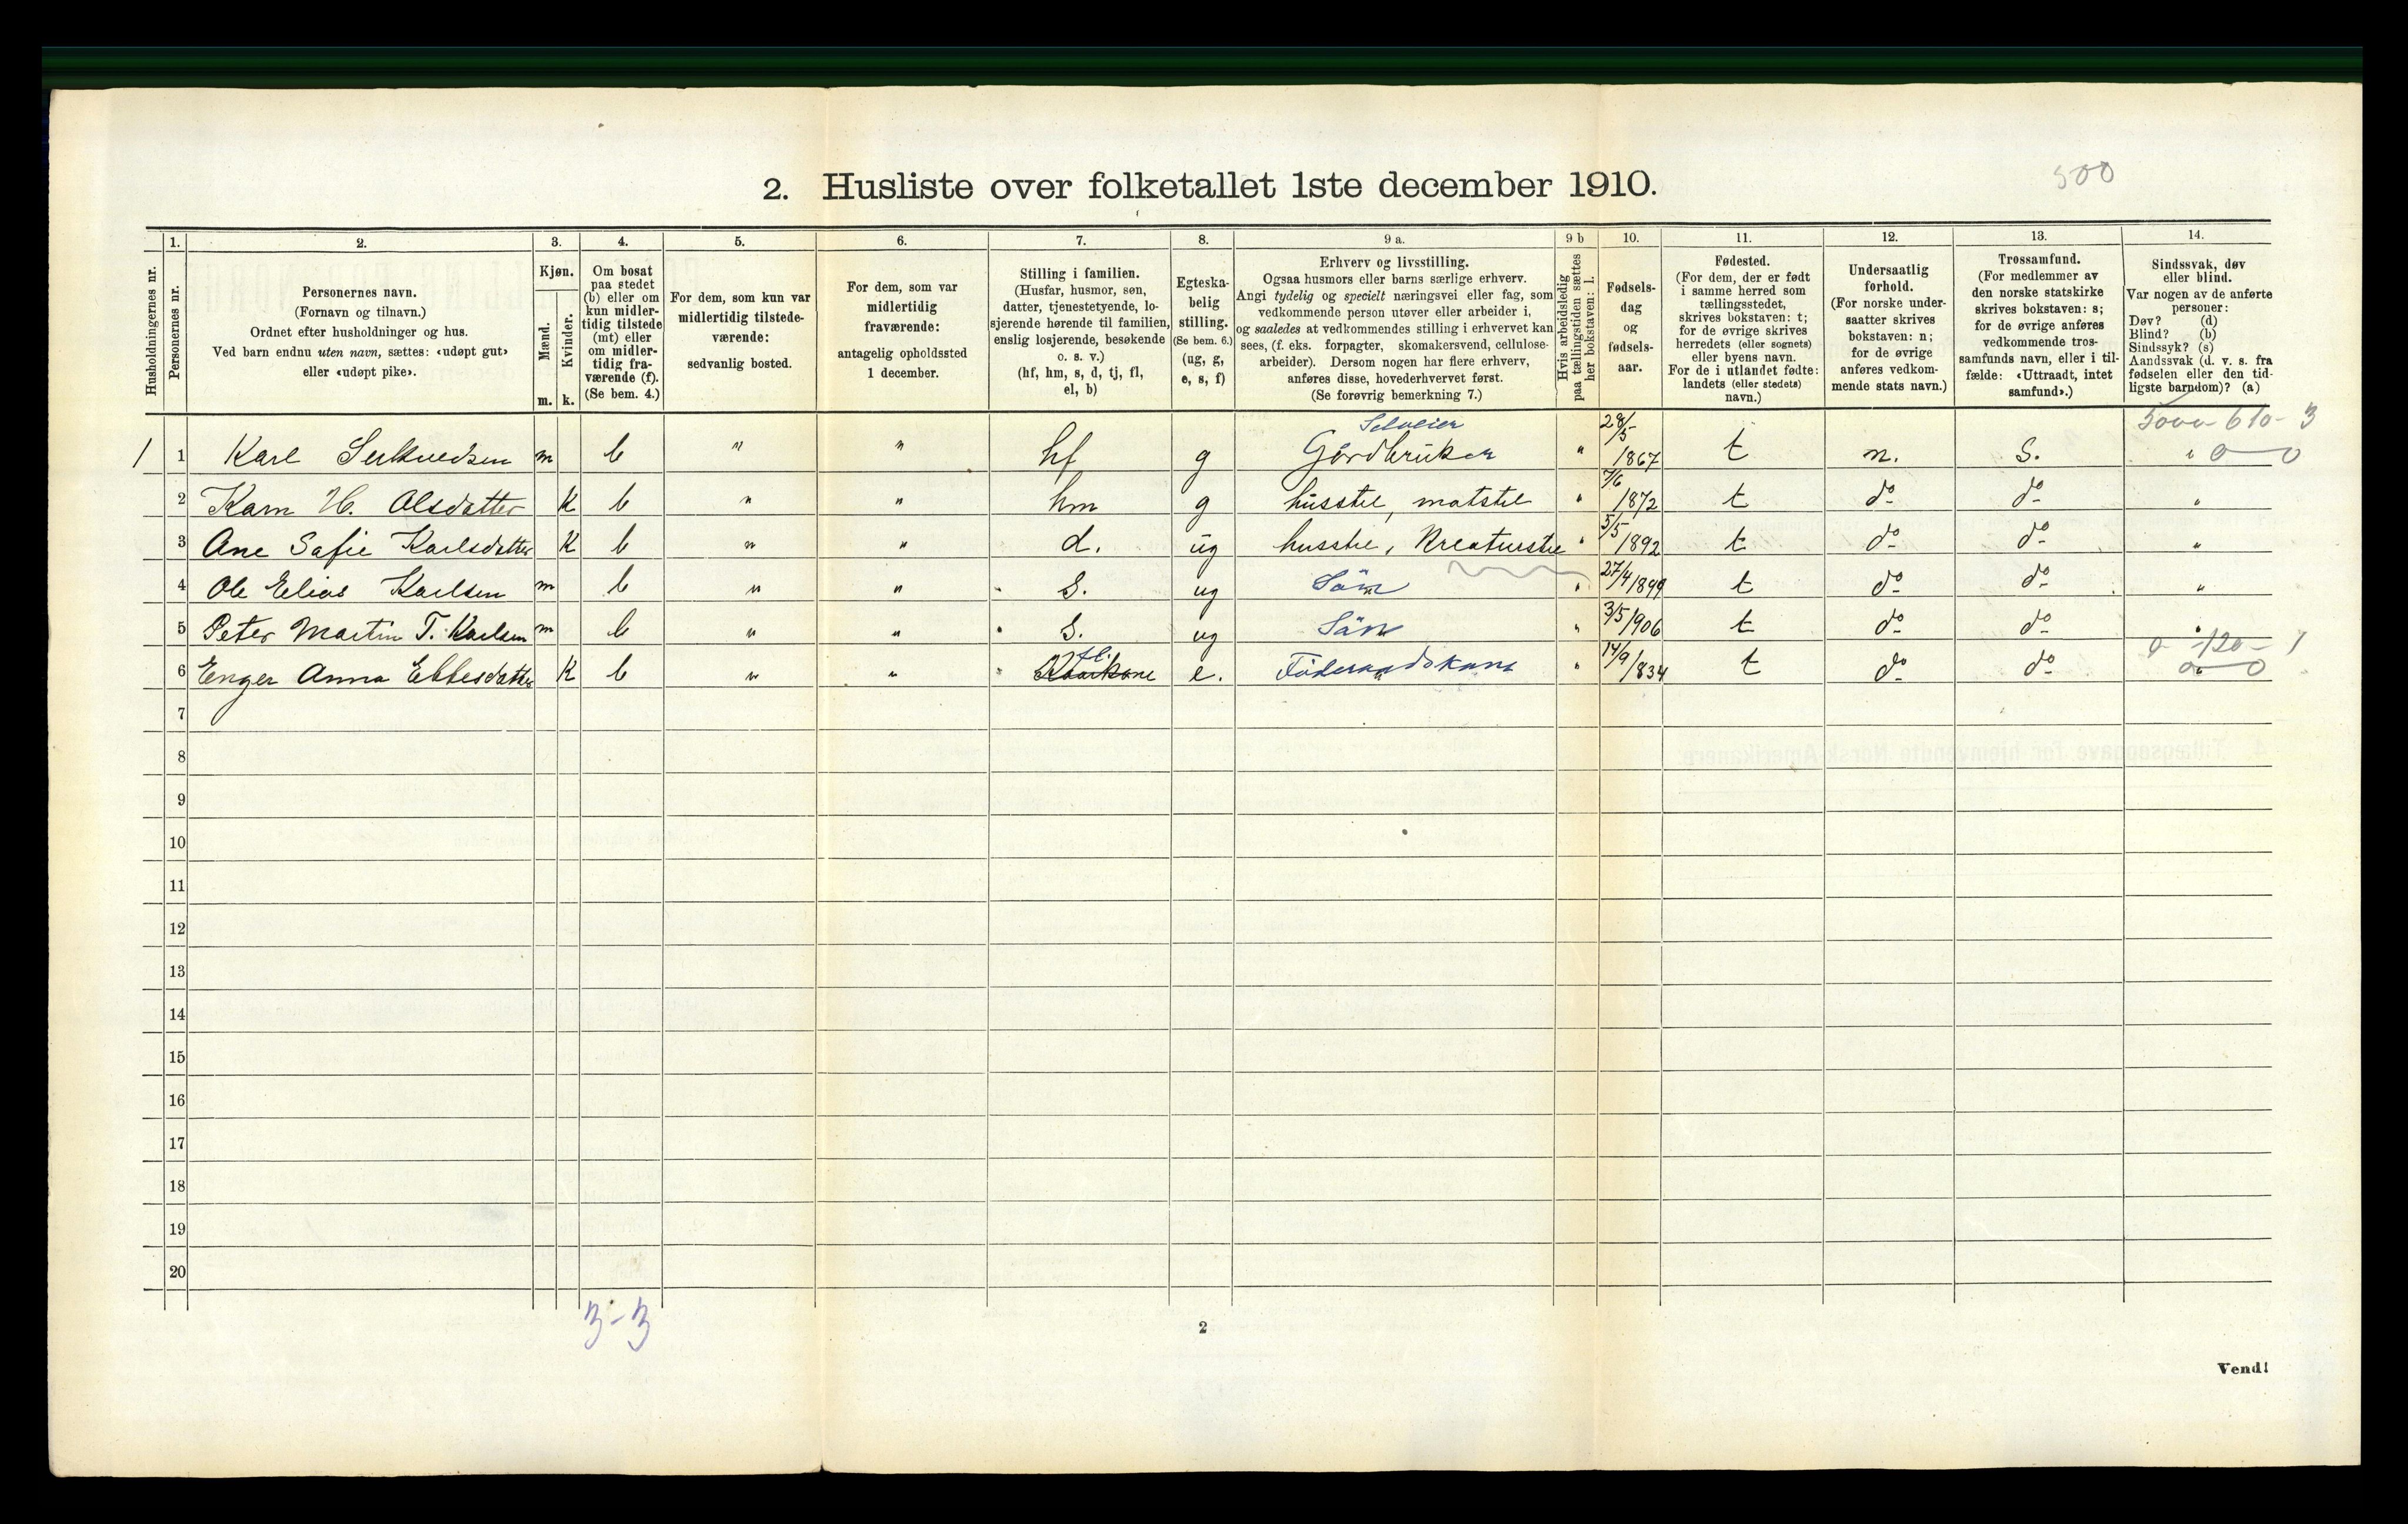 500
2. Husliste over folketallet 1ste december 1910.
Husholdningernes nr.
1. Personernes nr.
2. Personernes navn.
(Fornavn og tilnavn.)
Ordnet efter husholdninger og hus.
Ved barn endnu uten navn, sættes: «udøpt gut»
eller «udøpt pike».
3. Kjøn.
Mænd. m.
Kvinder. k.
4. Om bosat
paa stedet
(b) eller om
kun midler-
tidig tilstede
(mt) eller
om midler-
tidig fra-
værende (f).
(Se bem. 4.)
5. For dem, som kun var
midlertidig tilstede-
værende:
sedvanlig bosted.
6. For dem, som var
midlertidig
fraværende:
antagelig opholdssted
1 december.
7. Stilling i familien.
(Husfar, husmor, søn,
datter, tjenestetyende, lo-
sjerende hørende til familien,
enslig losjerende, besøkende
o. s. v.)
(hf, hm, s, d, tj, fl,
el, b)
8. Egteska-
belig
stilling.
(Se bem. 6.)
(ug, g,
e, s, f)
9 a. Erhverv og livsstilling.
Ogsaa husmors eller barns særlige erhverv.
Angi tydelig og specielt næringsvei eller fag, som
vedkommende person utøver eller arbeider i,
og saaledes at vedkommendes stilling i erhvervet kan
sees, (f. eks. forpagter, skomakersvend, cellulose-
arbeider). Dersom nogen har flere erhverv,
anføres disse, hovederhvervet først.
(Se forøvrig bemerkning 7.)
9 b Hvis arbeidsledig
paa tællingstiden sættes
her bokstaven: l.
10. Fødsels-
dag
og
fødsels-
aar.
11. Fødested.
(For dem, der er født
i samme herred som
tællingsstedet,
skrives bokstaven: t;
for de øvrige skrives
herredets (eller sognets)
eller byens navn.
For de i utlandet fødte:
landets (eller stedets)
navn.)
12. Undersaatlig
forhold.
(For norske under-
saatter skrives
bokstaven: n;
for de øvrige
anføres vedkom-
mende stats navn.)
13. Trossamfund.
(For medlemmer av
den norske statskirke
skrives bokstaven: s;
for de øvrige anføres
vedkommende tros-
samfunds navn, eller i til-
fælde: «Uttraadt, intet
samfund».)
14. Sindssvak, døv
eller blind.
Var nogen av de anførte
personer:
Døv? (d)
Blind? (b)
Sindssyk? (s)
Aandssvak (d. v. s. fra
fødselen eller den tid-
ligste barndom)? (a)
Selveier 28/5 5000 - 610 - 3
1 1 Karl m b " " hf g Gårdbruker " 1867 t n. S. " 0 0
2 Karn H. Olsdatter K b " " hm g husstel, matstel " 7/6 1872 t do do "
3 Ane Safie Karlsdatter K b " " d. ug husstel, Kreaturstel " 5/5 1892 t do do "
4 Ole Elias Karlsen m b " " S. ug Sön " 27/4 1899 t do do "
5 Peter Martin T. Karlsen m b " " S. ug Sön " 3/5 1906 t do do "
fl. 0 - 120 - 1
6 Enger Anna Ebbesdatter K b " " Kaarkone e. Föderaadskone " 14/9 1834 t do do " 0 0
7
8
9
10
11
12
13
14
15
16
17
18
19
20
3-3
2
Vend!